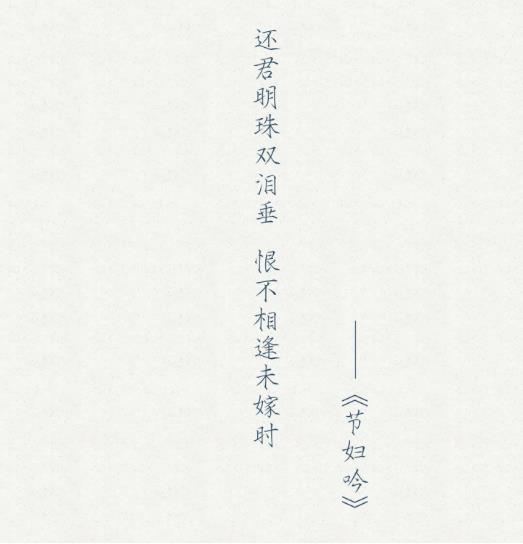 还君明珠双泪垂 恨不相逢未嫁时
——《节妇吟》